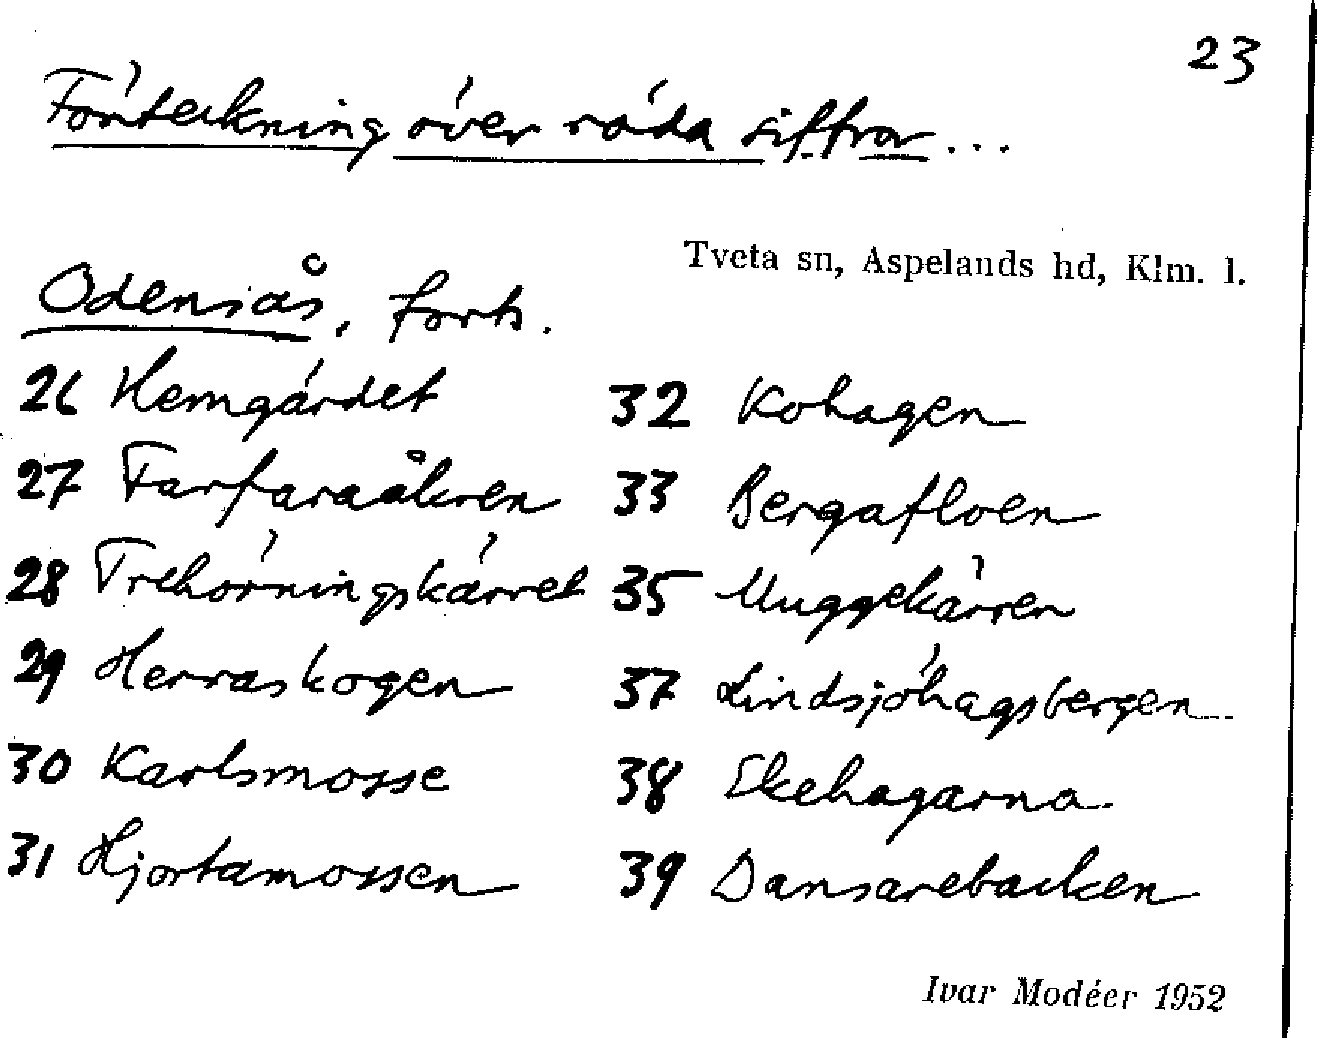 23
Förteckning över röda siffror...
Tveta sn, Aspelands hd, Klm. l.
Odensås, forts.
26 Hemgärdet
27 Farfaraåkren
28 Trehörningskärret
29 Herraskogen
30 Karlsmosse
31 Hjortamossen
32 Kohagen
33 Bergafloen
35 Muggekärren
37 Lindsjöhagsbergen
38 Ekehagarna
39 Dansarebacken
Ivar Modéer 1952